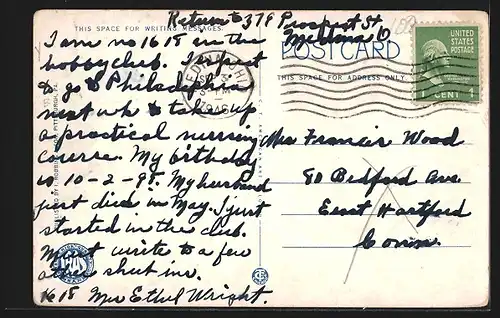 Return to 378 Prospect St.
THIS SPACE FOR WRITING MESSAGES
I am no 1618 in the
hobby club. I expect
to go to Philadelphia
next wk to take up
a practical nursing
course. My birthday
is 10-2-9
My husband
just died in May. I just
started in the club.
Must write to a few
other shut ins.
1618 Mrs Ethel Wright.
POST CARD
THIS SPACE FOR ADDRESS ONLY
UNITED
STATES
POSTAGE
1 CENT 1
Mrs Francis Wood
80 Bedford Ave
East Hartford
Conn.